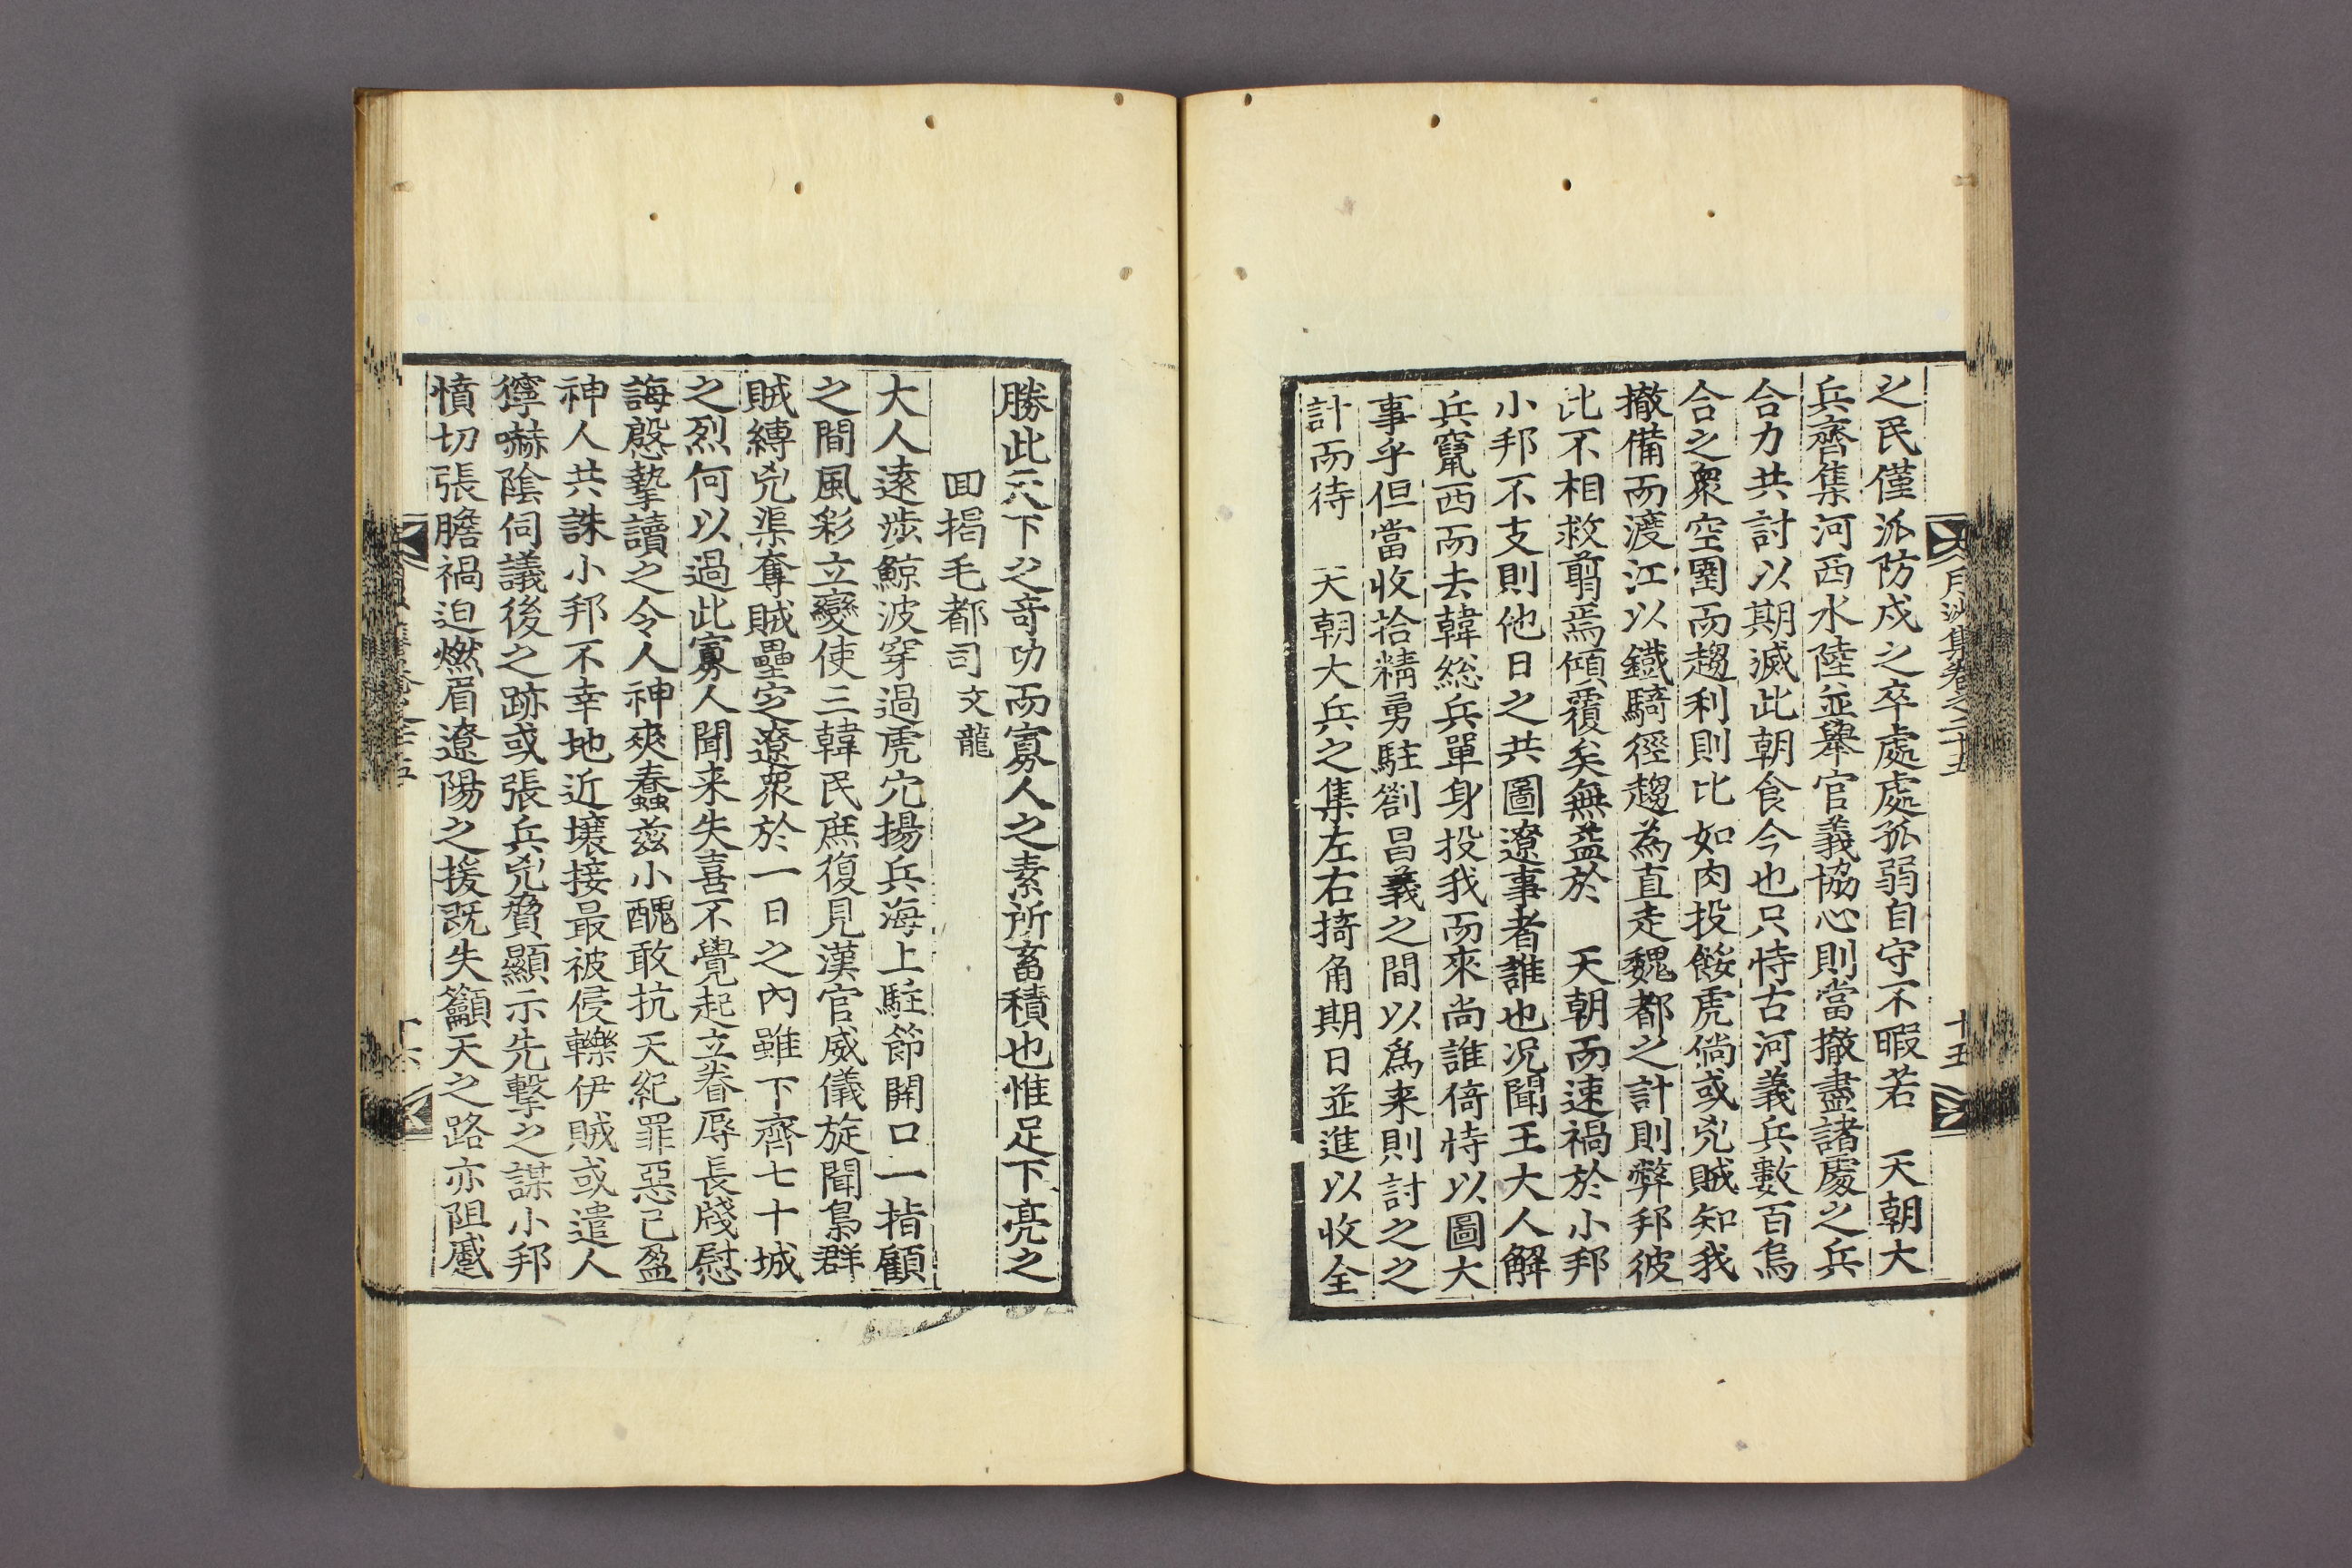 月沙集卷之二十五
十五
之民僅派防戍之卒處處孤弱自守不暇若 天朝大
兵齊集河西水陸並舉官義協心則當撤盡諸處之兵
合力共討以期滅此朝食今也只恃古河義兵數百烏
合之衆空國而趨利則比如肉投餒虎倘或兇賊知我
撤備而渡江以鐵騎徑趨為直走魏都之計則弊邦彼
比不相救翦焉傾覆矣無益於 天朝而速禍於小邦
小邦不支則他日之共圖遼事者誰也况聞王大人解
兵竄西而去韓総兵單身投我而來尚誰倚恃以圖大
事乎但當收拾精勇駐劄昌義之間以爲来則討之之
計而待 天朝大兵之集左右掎角期日並進以收全
勝此天下之奇功而寡人之素所畜積也惟足下亮之
回揭毛都司文龍
大人遠涉鯨波穿過虎穴揚兵海上駐節関口一指顧
之間風彩立變使三韓民庶復見漢官威儀旋聞梟群
賊縛兇渠奪賊壘定遼衆於一日之內雖下齊七十城
之烈何以過此寡人聞来失喜不覺起立眷辱長牋慰
誨慇摯讀之令人神爽蠢玆小醜敢抗天紀罪惡已盈
神人共誅小邦不幸地近壤接最被侵轢伊賊或遣人
獰嚇陰伺議後之跡或張兵兇脅顯示先擊之謀小邦
憤切張膽禍迫燃眉遼陽之援既失籲天之路亦阻蹙